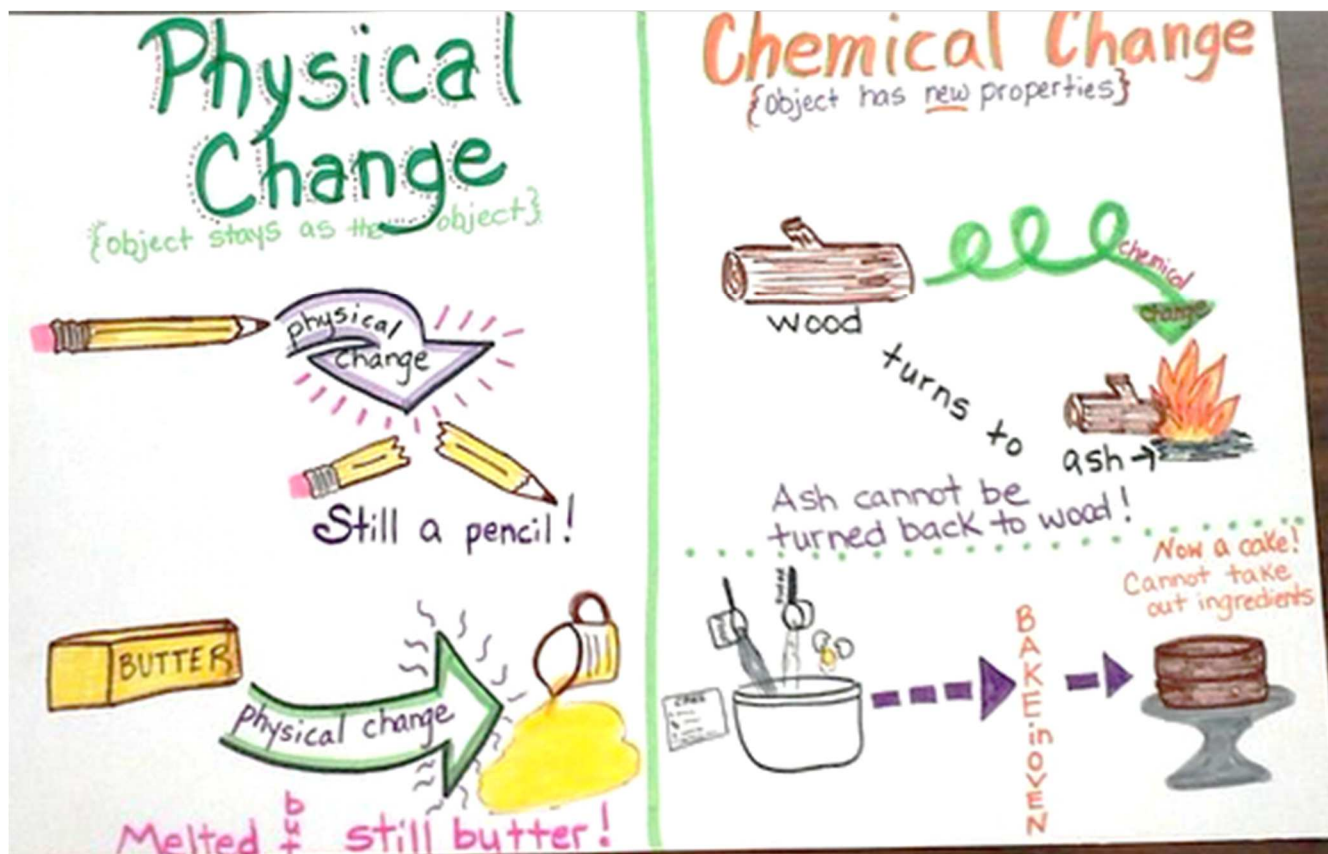 Physical
Change
{object stays as the object}
physical
change
Still a pencil!
BUTTER
physical change
Melted but still butter!
Chemical Change
{object has new properties}
wood
chemical
change
turns to
ash→
Ash cannot be
turned back to wood!
Now a cake!
Cannot take
out ingredients
CAKE
BAKE in OVEN